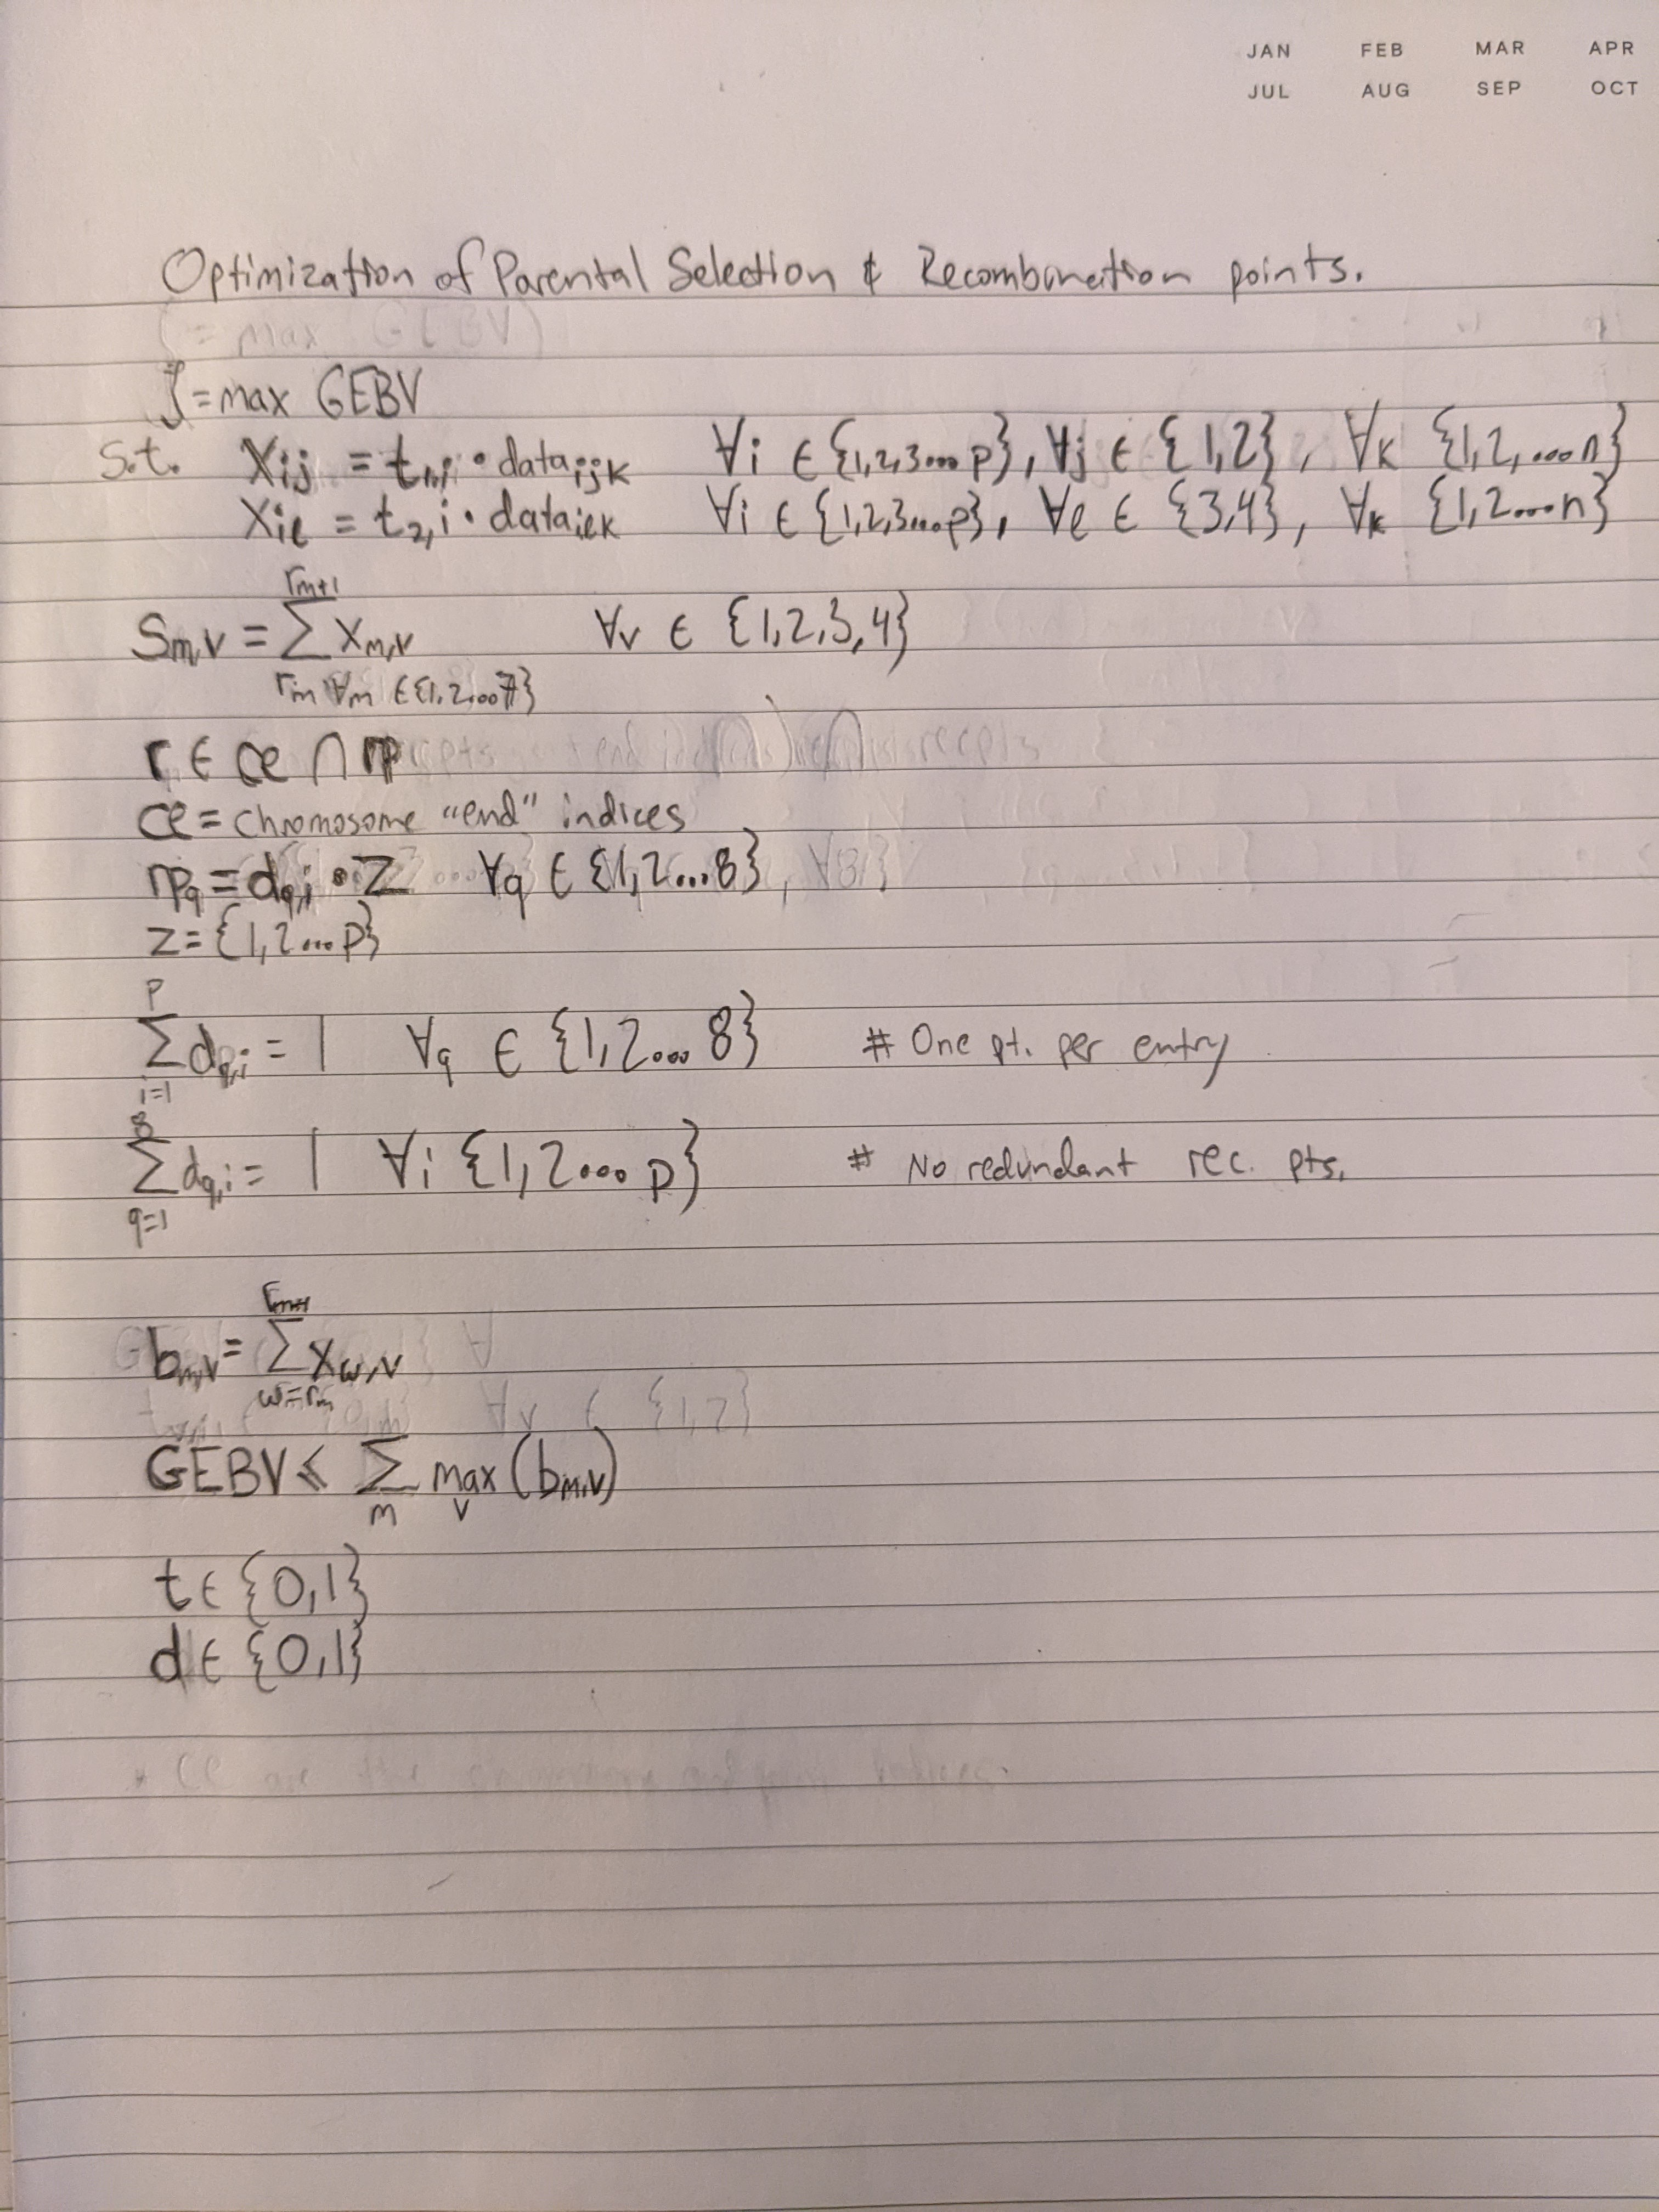 JAN FEB MAR APR
JUL AUG SEP OCT
Optimization of Parental Selection & Recombination points.
ζ = max GEBV
s.t. Xij = t1,i • dataijk ∀i ∈ {1,2,3...p}, ∀j ∈ {1,2}, ∀k {1,2,...n}
Xiℓ = t2,i • dataiℓk ∀i ∈ {1,2,3...p}, ∀ℓ ∈ {3,4}, ∀k {1,2...n}
rm+1
Sm,v = ∑ Xm,v ∀v ∈ {1,2,3,4}
rm ∀m ∈ {1,2...7}
r ∈ ce ∩ rp
ce = chromosome "end" indices
rpq = dq,i • Z ∀q ∈ {1,2...8}
z = {1,2...p}
p
∑ dq,i = 1 ∀q ∈ {1,2...8} # One pt. per entry
i=1
8
∑ dq,i = 1 ∀i {1,2...p} # No redundant rec. pts.
q=1
rm+1
bm,v = ∑ Xw,v
w=rm
GEBV ≤ ∑ max (bm,v)
m v
t ∈ {0,1}
d ∈ {0,1}